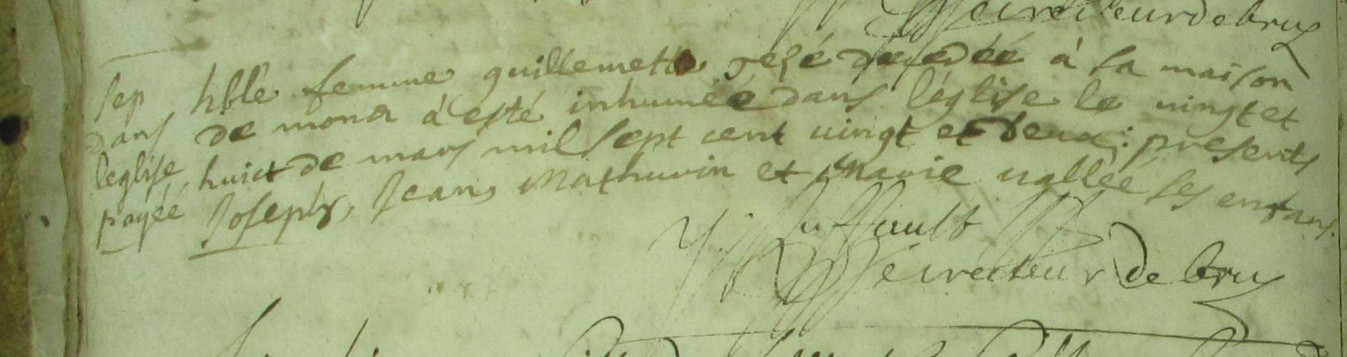 recteur de bruz
Sep hble femme guillemette gezé decedée à sa maison
dans de mona à esté inhumée dans l'église le vingt et
l'eglise huict de mars mil sept cent vingt et deux: presents
payée Joseph, Jean, Mathurin et Marie vallée ses enfans.
recteur de bruz